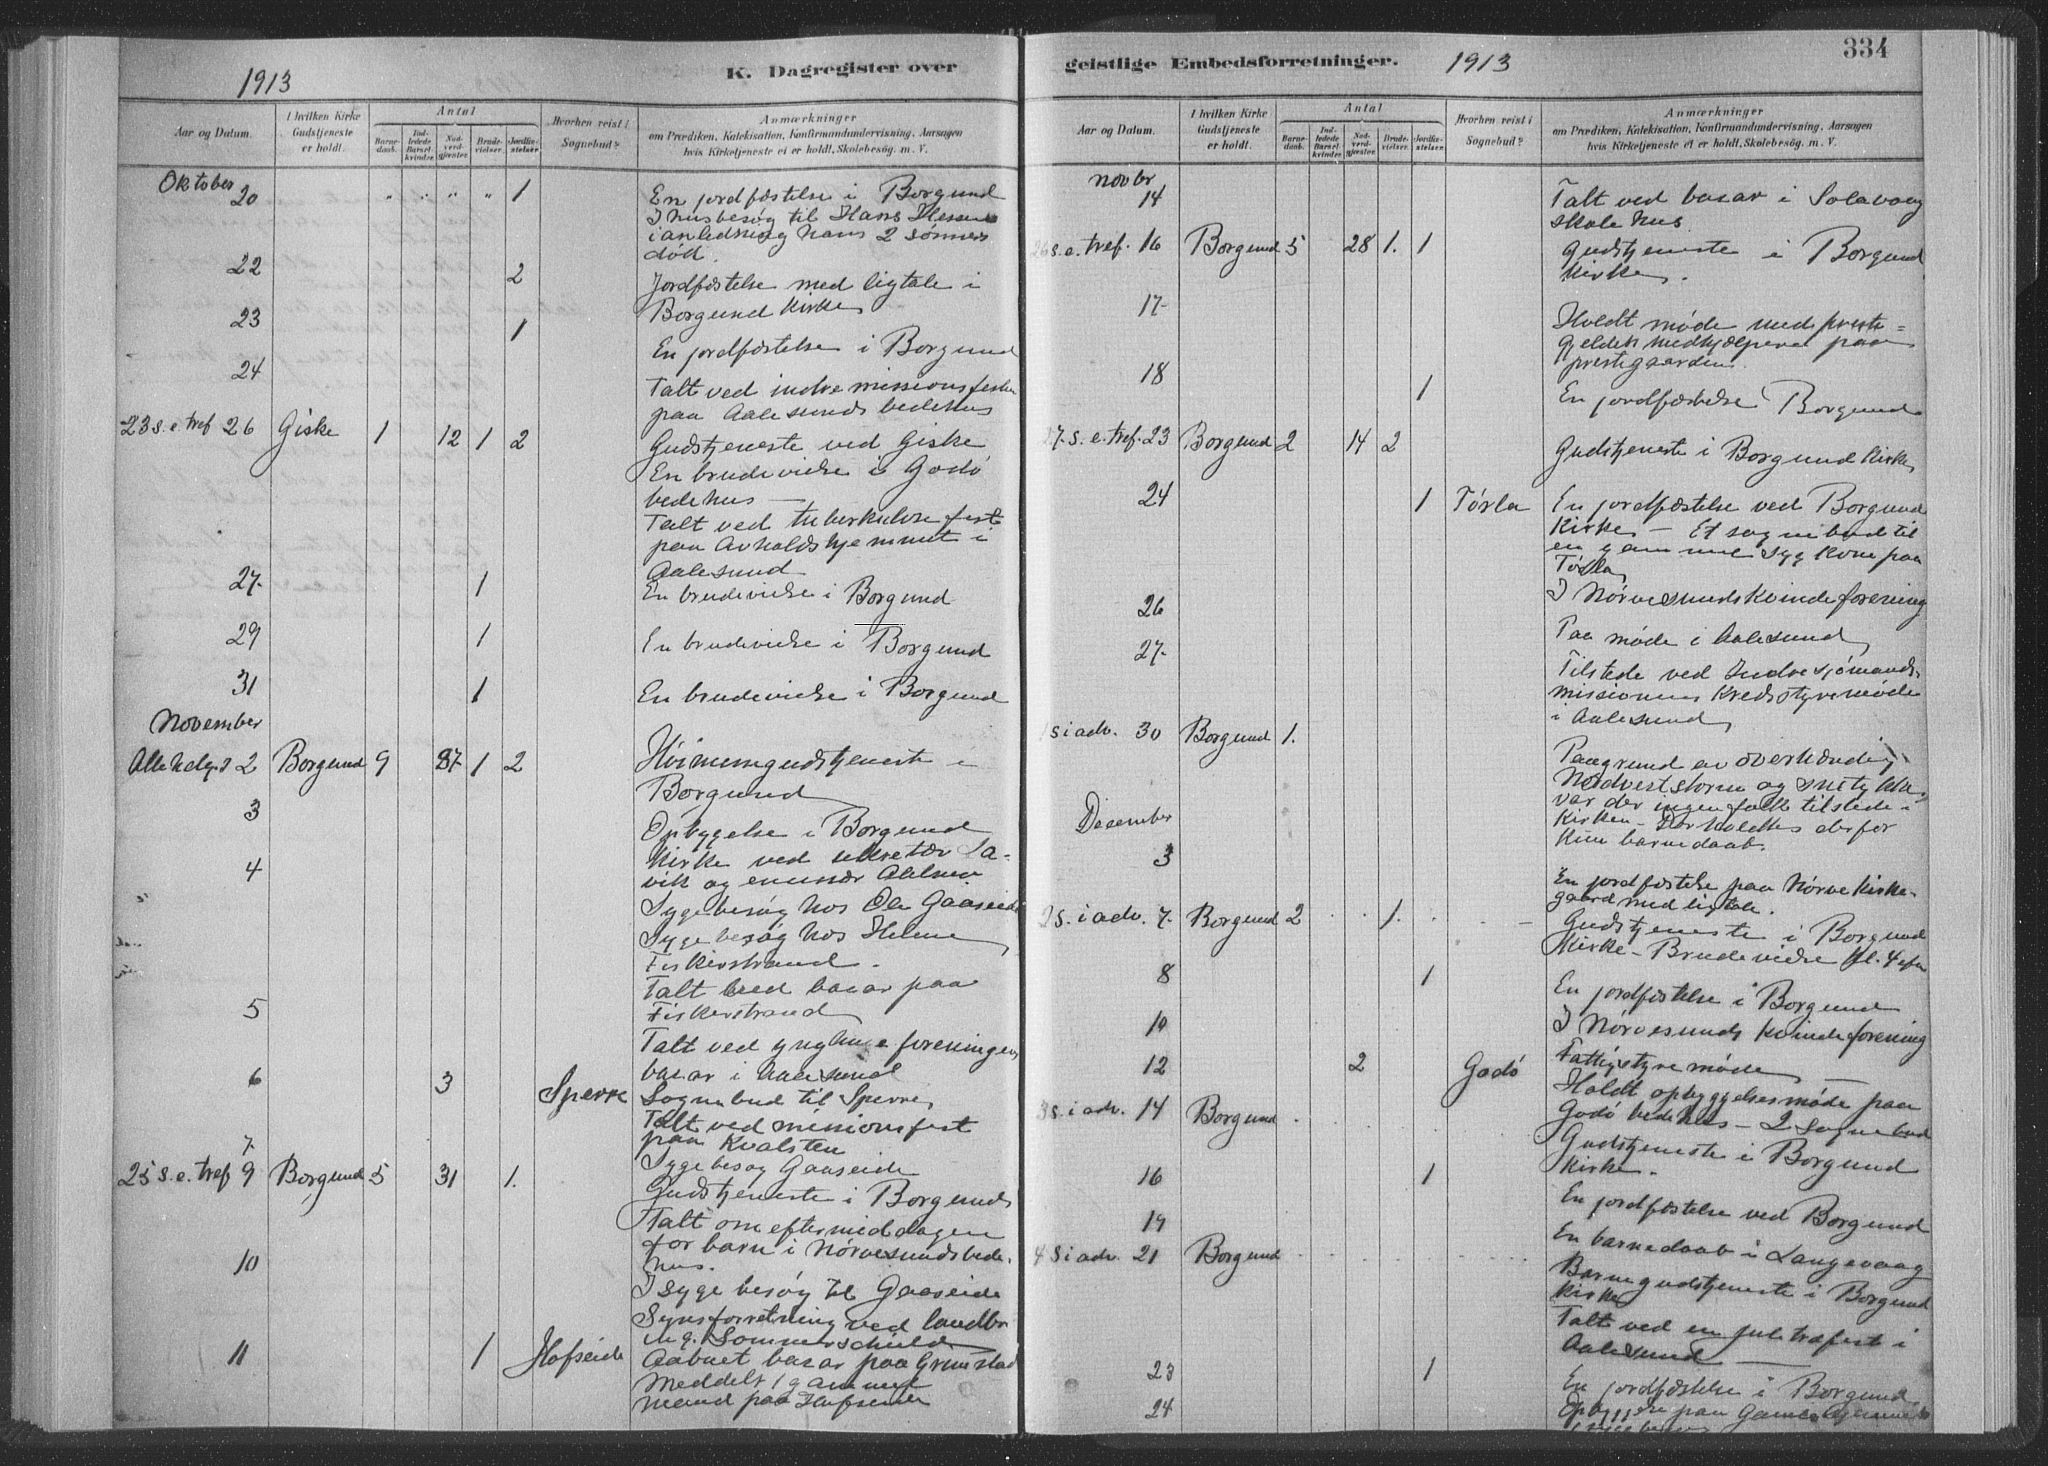 1913
K. Dagregister over
Aar og Datum.
I hvilken Kirke Gudstjeneste er holdt.
Antal
Barnedaab.
Indledede Barselkvinder.
Nadverdgjester.
Brudevielser.
Jordfæstelser.
Hvorhen reist i Sognebud?
Anmærkninger
om Prædiken, Katekisation, Konfirmandundervisning, Aarsagen
hvis Kirketjeneste ei er holdt, Skolebesøg. m. V.
Oktober
20 " " " " 1 En jordfæstelse i Borgund
I husbesøg til Hans
i anledning hans 2 sønners
død.
22 2 Jordfæstelse med ligtale i
Borgund Kirke
23 1 En jordfæstelse i Borgund
24 Talt ved indre missionsfesten
paa Aalesunds bedehus
23 s. e. tref 26 Giske 1 12 1 2 Gudstjeneste ved Giske
En brudevielse i Godø
bedehus —
Talt ved tuberkulosefest
paa Avholdshjemmet i
Aalesund
27. 1 En brudevielse i Borgund
29 1 En brudevielse i Borgund
31 1 En brudevielse i Borgund
November
Allehelg. 2 Borgund 9 37 1 2 Høimessegudstjeneste i
Borgund
3 Opbyggelse i Borgund
Kirke ved sekretær
vik og emissær
4 Sygebesøg hos Ole Gaaseide
Sygebesøg hos Helene
Fiskerstrand.
Talt ved basar paa
5 Fiskerstrand
Talt ved foreningens
basar i Aalesund
6 3 Sperre Sognebud til Sperre
Talt ved missionsfest
paa Kvalsten
7 Sygebesøg Gaaseide
25 s. e. tref 9 Borgund 5 31 1. Gudstjeneste i Borgund
Talt om eftermiddagen
for barn i Nørvesunds bede-
hus.
10 I sygebesøg til Gaaseide
Synsforretning ved landbr
ing. Sommerschield
11 1 Hofseide Aabnet basar paa Grimstad
Meddelt 1 gammel
mand paa Hofseide
geistlige Embedsforretninger.
1913
334
Aar og Datum.
I hvilken Kirke Gudstjeneste er holdt.
Antal
Barnedaab.
Indledede Barselkvinder.
Nadverdgjester.
Brudevielser.
Jordfæstelser.
Hvorhen reist i Sognebud?
Anmærkninger
om Prædiken, Katekisation, Konfirmandundervisning, Aarsagen
hvis Kirketjeneste ei er holdt, Skolebesøg. m. V.
Novbr
14 Talt ved basar i Solavaag
skolehus
26 s. e. tref. 16 Borgund 5 28 1. 1 Gudstjeneste i Borgund
Kirke.
17. Holdt møde med preste-
gjeldets medhjælpere paa
prestegaarden.
18 1 En jordfæstelse Borgund
27. s. e. tref. 23 Borgund 2 14 2 Gudstjeneste i Borgund Kirke
24 1 Tørla En jordfæstelse ved Borgund
Kirke — Et sognebud til
en gammel syg kone paa
Tørla
26 I Nørvesunds kvindeforening
27. Paa møde i Aalesund
Tilstede ved Indre sjømands-
missionens Kredsstyremøde
i Aalesund
1 s i adv. 30 Borgund 1. Paa grund av overhændig
Nordveststorm og
var der ingen folk tilstede i
Kirken — Der holdtes derfor
kun barnedaab.
December
3 En jordfæstelse paa Nørve Kirke-
gaard med ligtale.
2 s. i adv. 7. Borgund 2 . . 1. . - Gudstjeneste i Borgund
Kirke — Brudevielse kl. 4 efm
8 1 En jordfæstelse i Borgund
10 I Nørvesunds kvindeforening
12 2 Godø Fattigstyremøde —
Holdt opbyggelsesmøde paa
Godø bedehus — 2 sognebud
3 s. i adv. 14 Borgund Gudstjeneste i Borgund
Kirke.
16 1 En jordfæstelse ved Borgund
19 En barnedaab i Langevaag
4 s i adv. 21 Borgund Barnegudstjeneste i Borgund
Kirke
Talt ved en juletræfest i
Aalesund —
23 1 En jordfæstelse i Borgund
24 Opbyggelse paa